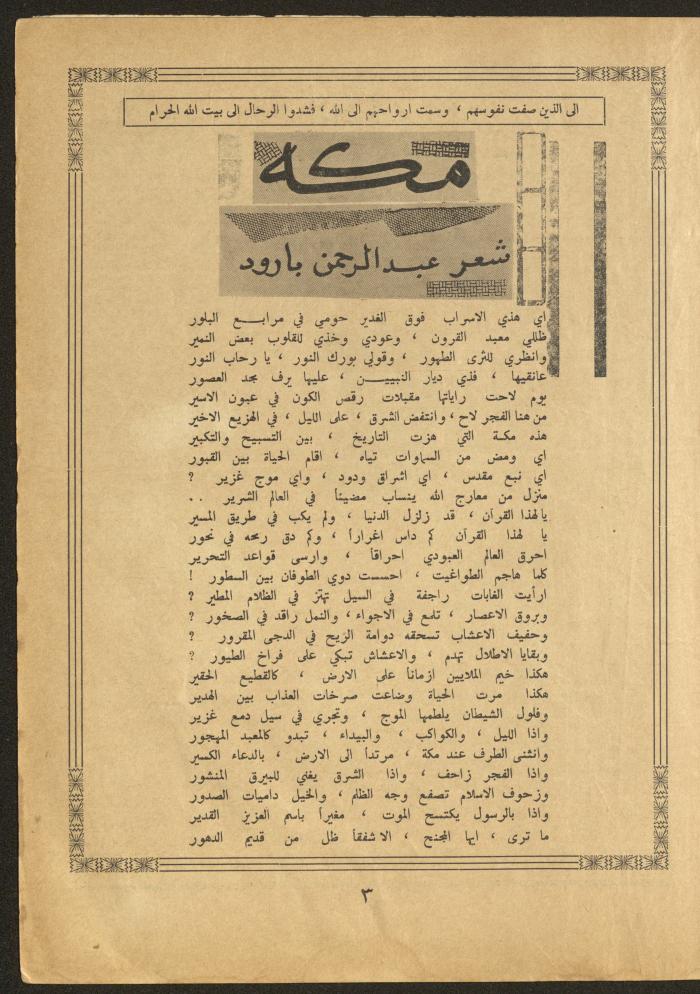 الى الذين صفت نفوسهم ، وسمت ارواحهم الى الله ، فشدوا الرحال الى بيت الله الحرام
مكة
شعر عبد الرحمن بارود
اي هذي الاسراب فوق الغدير حومي في مرابع البلور
ظللي معبد القرون ، وعودي وخذي للقلوب بعض النمير
وانظري للثرى الطهور ، وقولي بورك النور ، يا رحاب النور
عانقيها ، فذي ديار النبيين ، عليها يرف مجد العصور
يوم لاحت راياتها مقبلات رقص الكون في عبون الاسير
من هنا الفجر لاح ، وانتفض الشرق ، على الليل ، في الهزيع الاخير
هذه مكة التي هزت التاريخ ، بين التسبيح والتكبير
اي ومض من السماوات تياه ، اقام الحياة بين القبور
اي نبع مقدس ، اي اشراق ودود ، واي موج غزير ؟
منزل من معارج الله ينساب مضيئا في العالم الشرير ..
يالهذا القرآن ، قد زلزل الدنيا ، ولم يكب في طريق المسير
يا لهذا القرآن كم داس اغراراً ، وكم دق رمحه في نحور
احرق العالم العبودي احراقاً ، وارسى قواعد التحرير
كلما هاجم الطواغيت ، احسست دوي الطوفان بين السطور !
ارأيت الغابات راجفة في السيل تهتز في الظلام المطير ؟
وبروق الاعصار ، تلمع في الاجواء ، والنمل راقد في الصخور ؟
وحفيف الاعشاب تسحقه دوامة الريح في الدجى المقرور ؟
وبقايا الاطلال تهدم ، والاعشاش تبكي على فراخ الطيور ؟
هكذا خيم الملايين ازماناً على الارض ، كالقطيع الحقير
هكذا مرت الحياة وضاعت صرخات العذاب بين الهدير
وفلول الشيطان يلطمها الموج ، وتجري في سيل دمع غزير
واذا الليل ، والكواكب ، والبيداء ، تبدو كالمعبد المهجور
وانثنى الطرف عند مكة ، مرتداً الى الارض ، بالدعاء الكسير
واذا الفجر زاحف ، واذا الشرق يغني للبيرق المنشور
وزحوف الاسلام تصفع وجه الظلم ، والخيل داميات الصدور
واذا بالرسول يكتسح الموت ، مغيراً باسم العزيز القدير
ما ترى ، ايها المجنح ، الا شفقاً ظل من قديم الدهور
٣